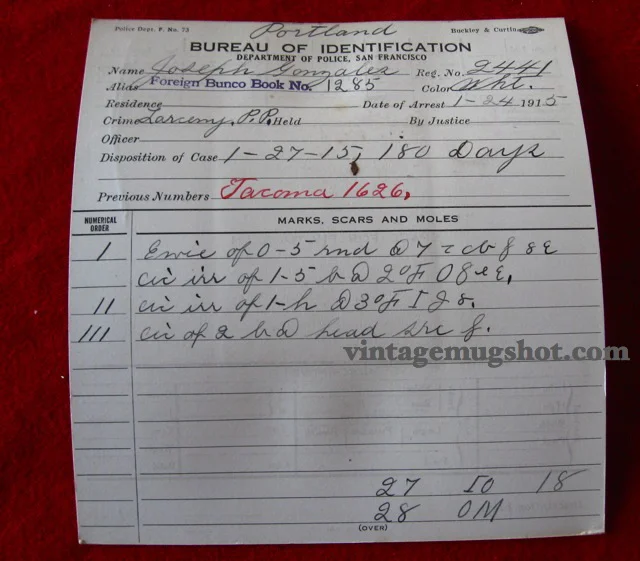 Portland
Police Dept. F. No. 73 Buckley & Curtin
BUREAU OF IDENTIFICATION
DEPARTMENT OF POLICE, SAN FRANCISCO
Name Joseph Gonzalez Reg. No. 2441
Alias Foreign Bunco Book No. 1285 Color Wht.
Residence Date of Arrest 1-24 1915
Crime Larceny. P.P. Held By Justice
Officer
Disposition of Case 1-27-15, 180 Days
Previous Numbers Tacoma 1626,
NUMERICAL ORDER MARKS, SCARS AND MOLES
I of 0-5 rnd @ 7
cic irr of 1-5 b @ 2
II cic irr of 1-h @ 3
III cic of 2 b @ head
vintagemugshot.com
27 10 18
28 OM
(OVER)